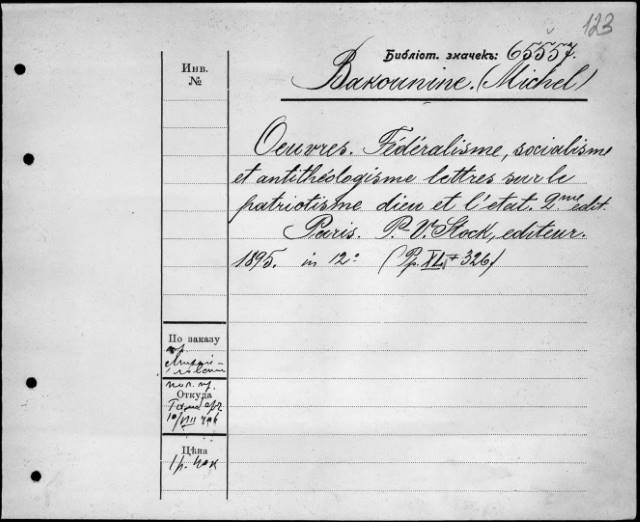 123
Библіот. значекъ: 65557.
Инв.
№
Bakounine. (Michel)
Oeuvres. Fédéralisme, socialisme
et antithéologisme lettres sur le
patriotisme dieu et l'état. 2me edit.
Paris. P. V. Stock, editeur.
1895. in 12º (Pp. XL + 326)
По заказу
Откуда
Цѣна
1 р. 40 к